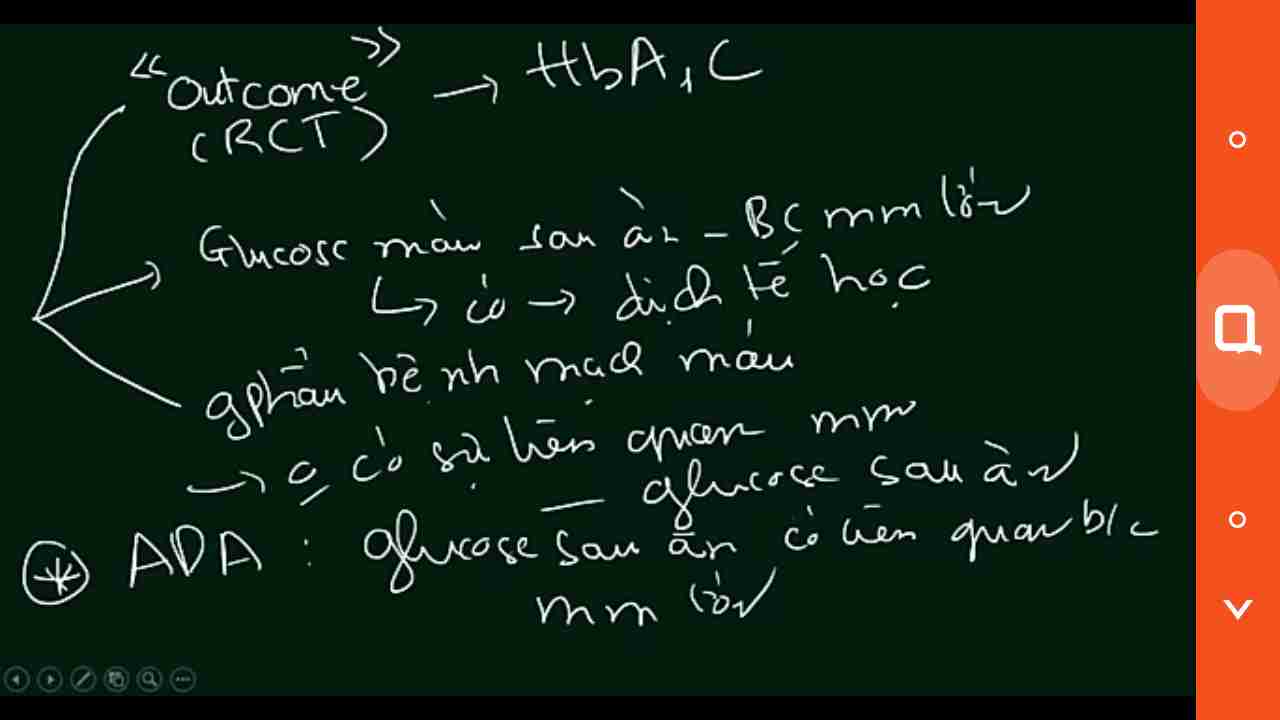 "Outcome" → HbA1C
(RCT)
Glucose máu sau ăn - BC mm lớn
↳ có → dịch tễ học
gphẫu bệnh mạch máu
→ o có sự liên quan mm
— glucose sau ăn
* ADA : glucose sau ăn có liên quan b/c
mm lớn